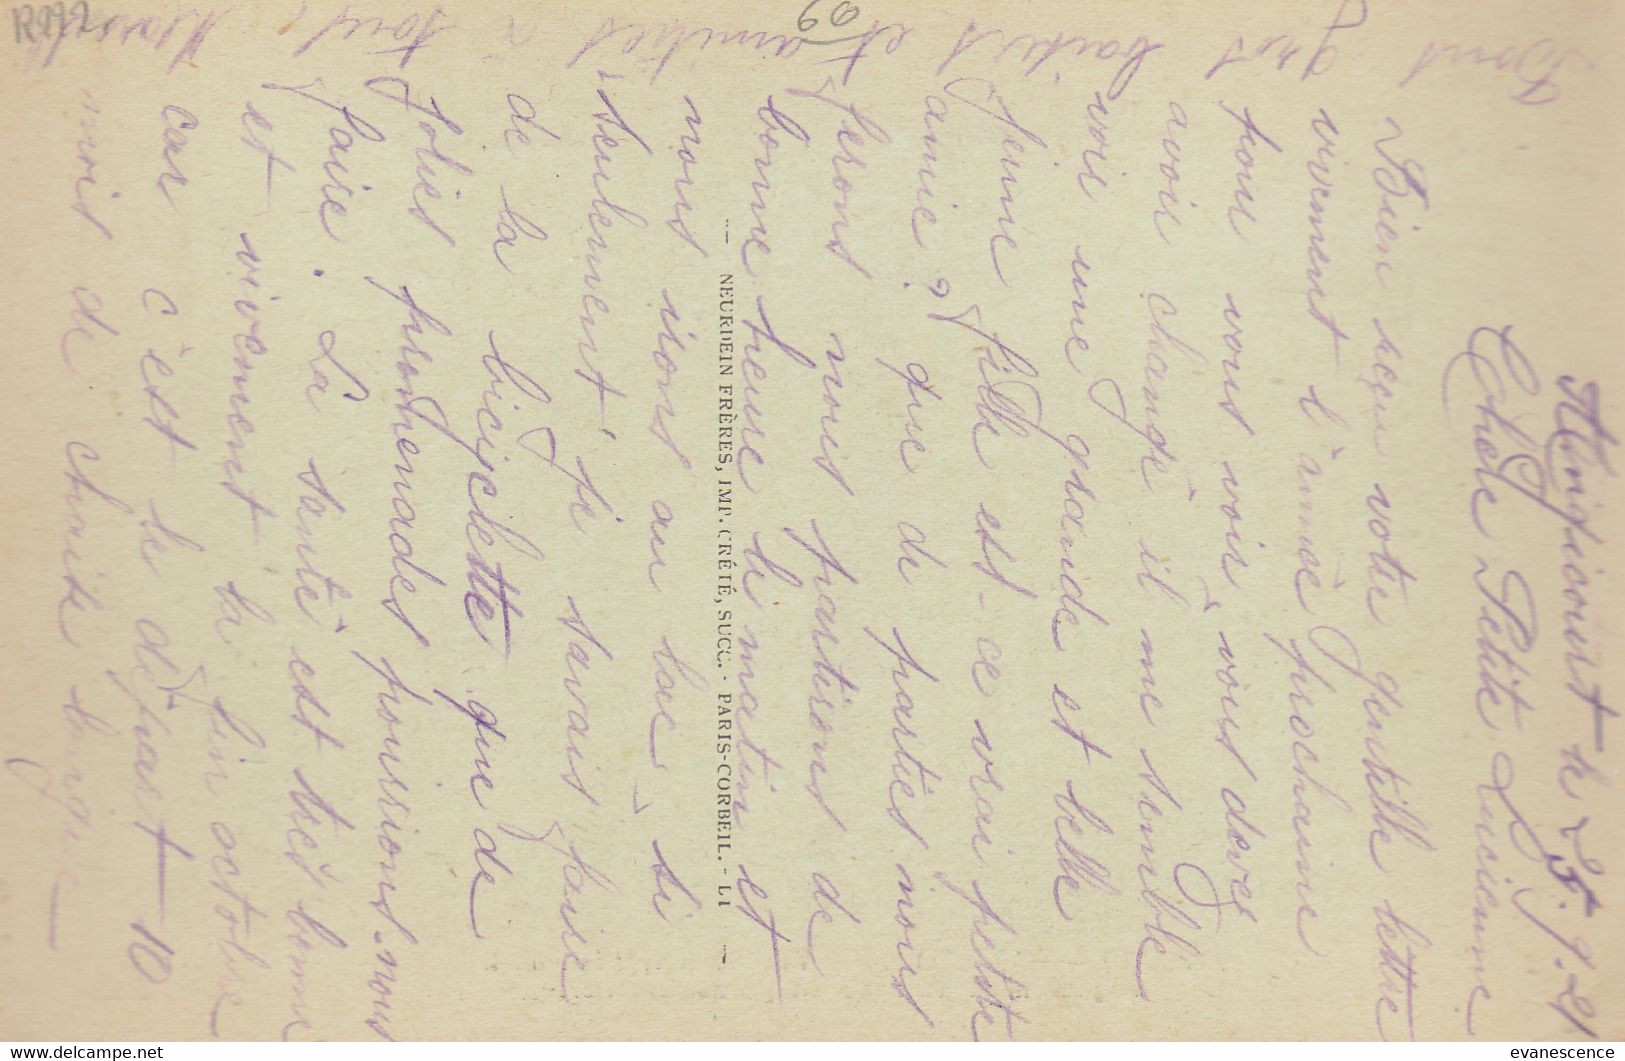 Alinficourt le 25.9.21
Chère Petite Lucienne
Bien reçu votre gentille lettre
vivement l'année prochaine
pour vous voir, vous devez
avoir changé il me semble
voir une grande et belle
jeune fille est-ce vrai petite
amie? que de parties nous
ferons nous partirons de
bonne heure le matin et
nous irons au lac, si
seulement je savais faire
de la bicyclette que de
jolies promenades pourrions-nous
faire. La santé est très bonne
et vivement la fin octobre
car c'est le départ 10
mois de chaise longue
gros baisers et amitiés à tous,
NEURDEIN FRÈRES, IMP. CRÉTÉ, SUCC. - PARIS-CORBEIL. - LI
R292
60
evanescence